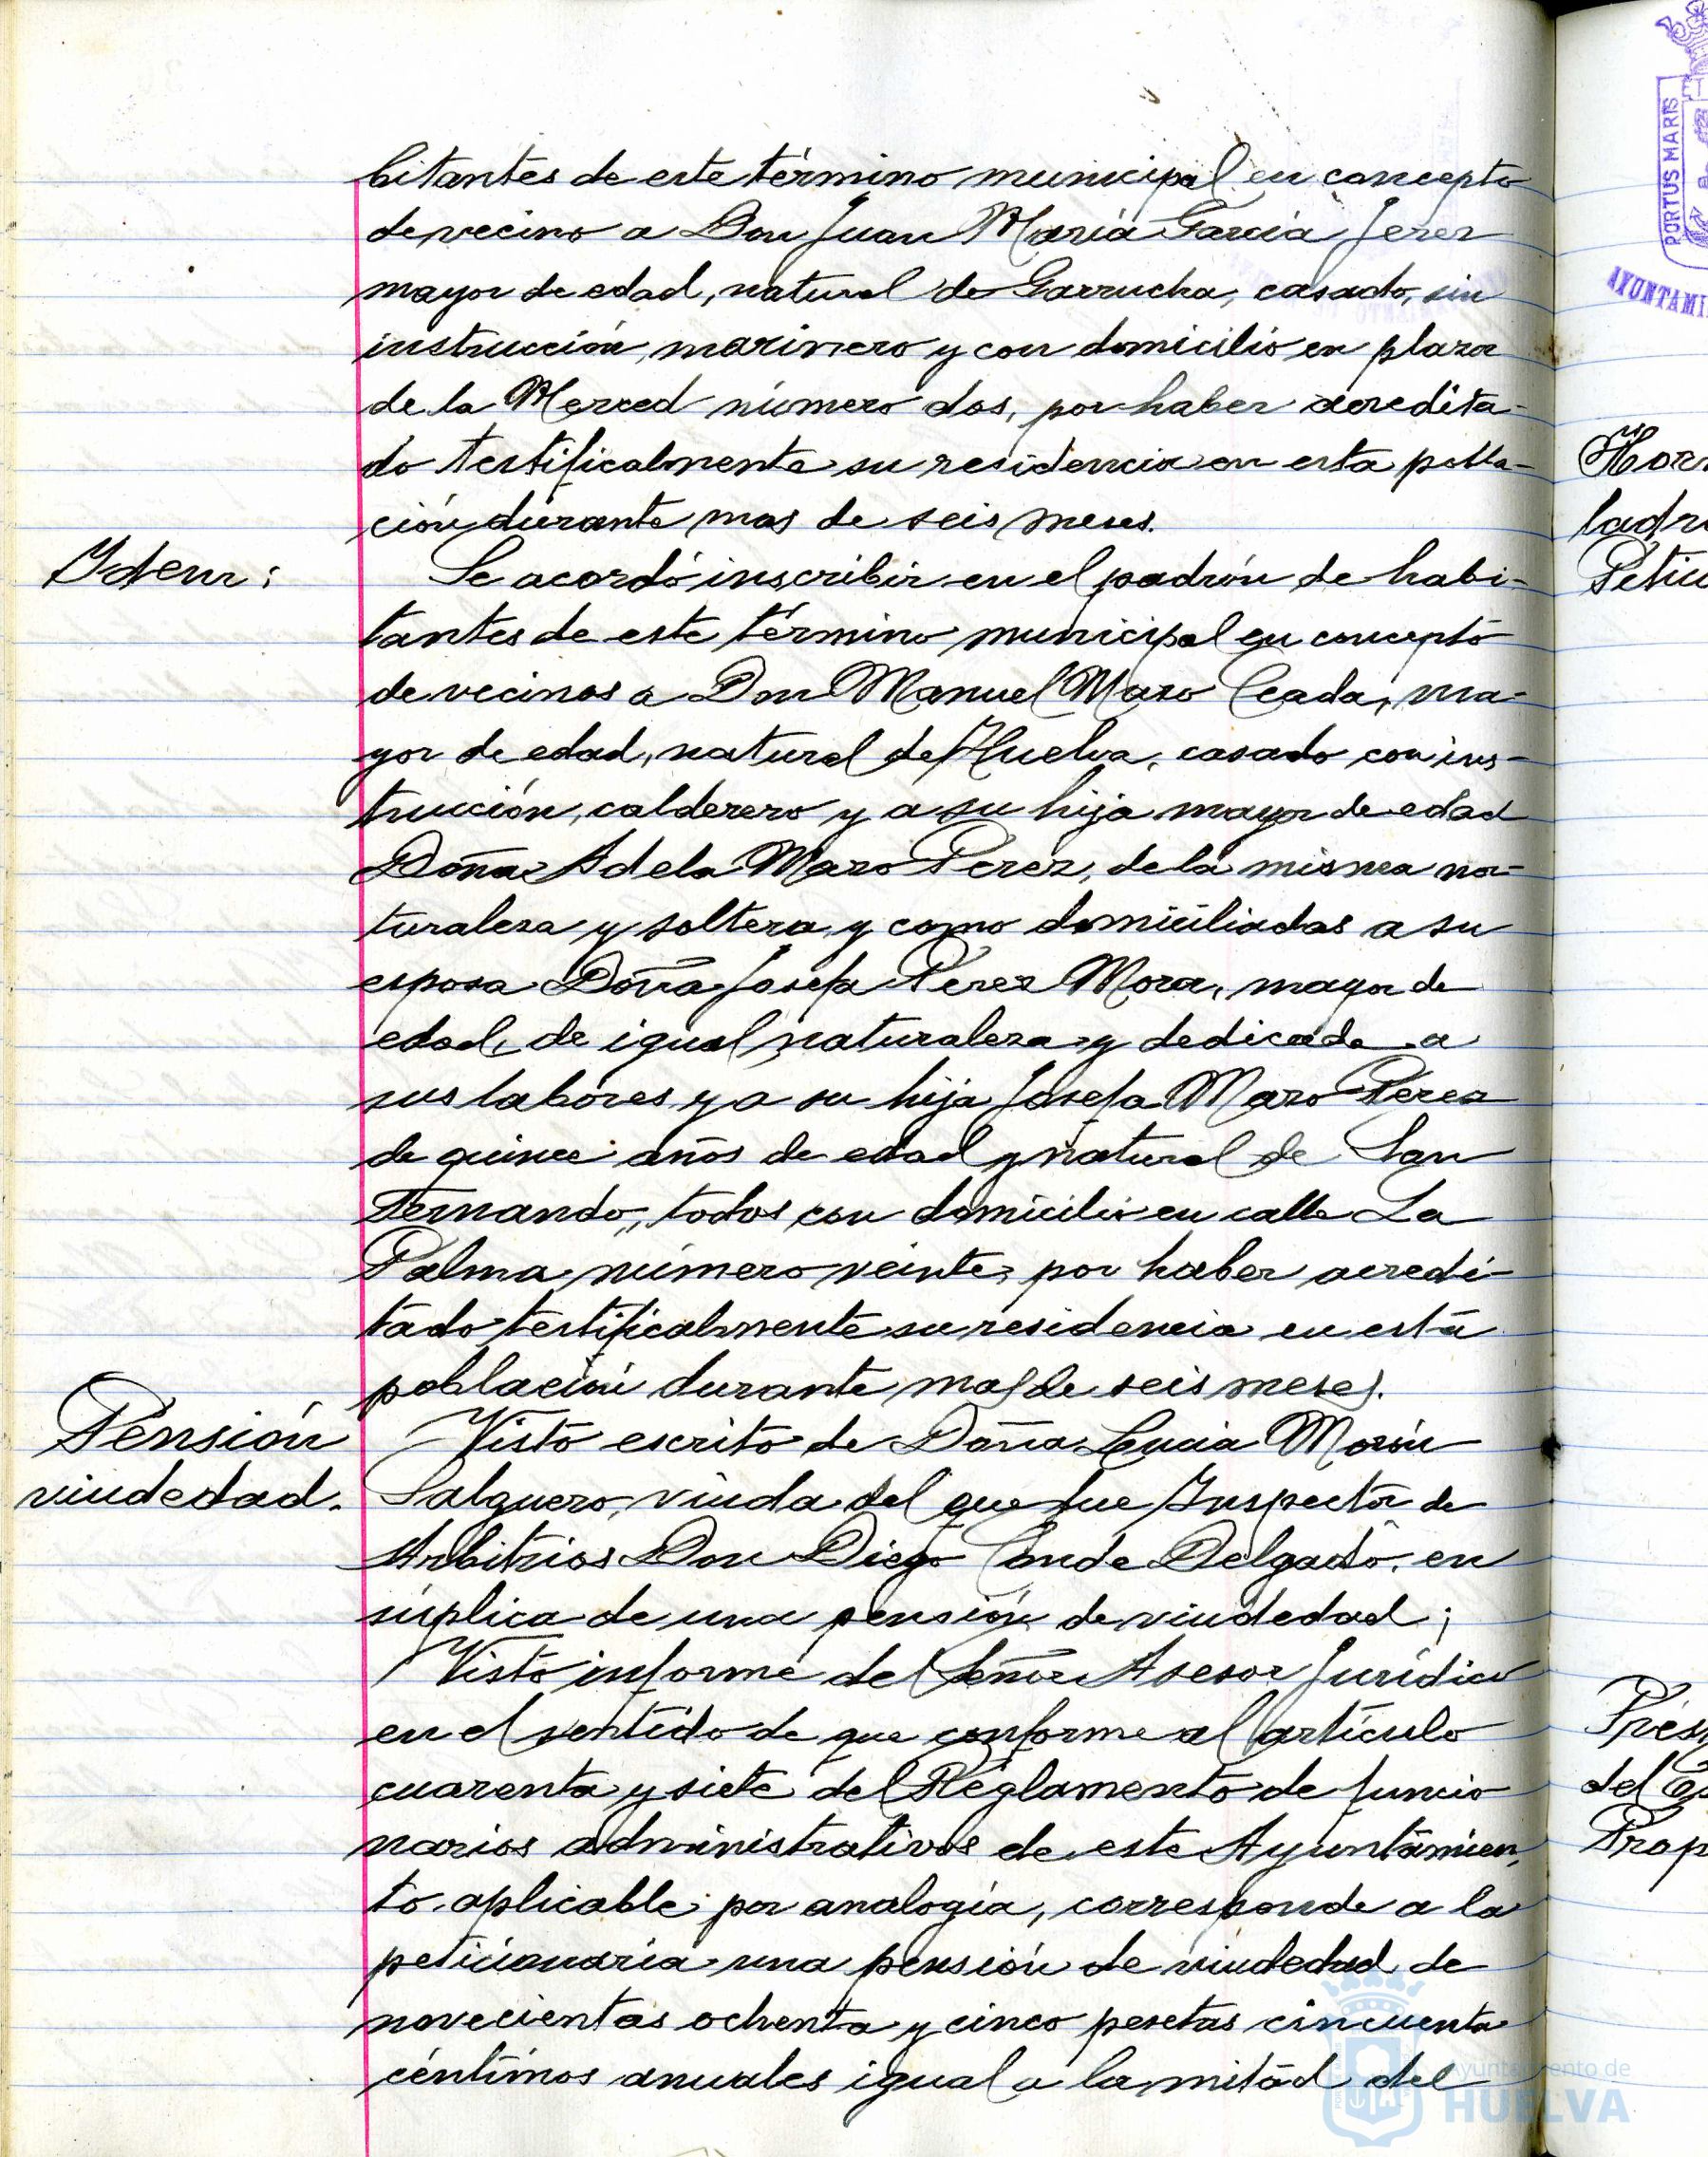 bitantes de este término municipal en concepto
de vecino a Don Juan María García Jerez
mayor de edad, natural de Garrucha, casado, sin
instrucción, marinero y con domicilio en plaza
de la Merced número dos, por haber acredita-
do testificalmente su residencia en esta pobla-
ción durante mas de seis meses.
Idem:
Se acordó inscribir en el padrón de habi-
tantes de este término municipal en concepto
de vecinos a Don Manuel Mazo Ceada, ma-
yor de edad, natural de Huelva, casado con ins-
trucción, calderero y a su hija mayor de edad
Doña Adela Mazo Perez, de la misma na-
turaleza y soltera y como domiciliadas a su
esposa Doña Josefa Perez Mora, mayor de
edad, de igual naturaleza y dedicada a
sus labores y a su hija Josefa Mazo Perez
de quince años de edad y natural de San
Fernando, todos con domicilio en calle La
Palma número veinte, por haber acredi-
tado testificalmente su residencia en esta
población durante mas de seis meses.
Pensión
viudedad.
Visto escrito de Doña Lucia Morón
Salguero, viuda del que fue Inspector de
Arbitrios Don Diego Conde Delgado, en
súplica de una pensión de viudedad;
Visto informe del Señor Asesor Jurídico
en el sentido de que conforme al artículo
cuarenta y siete del Reglamento de funcio
narios administrativos de este Ayuntamien-
to, aplicable por analogía, corresponde a la
peticionaria una pensión de viudedad de
novecientas ochenta y cinco pesetas cincuenta
céntimos anuales igual a la mitad del
PORTUS MARIS
AYUNTAMI
Ayuntamiento de
HUELVA